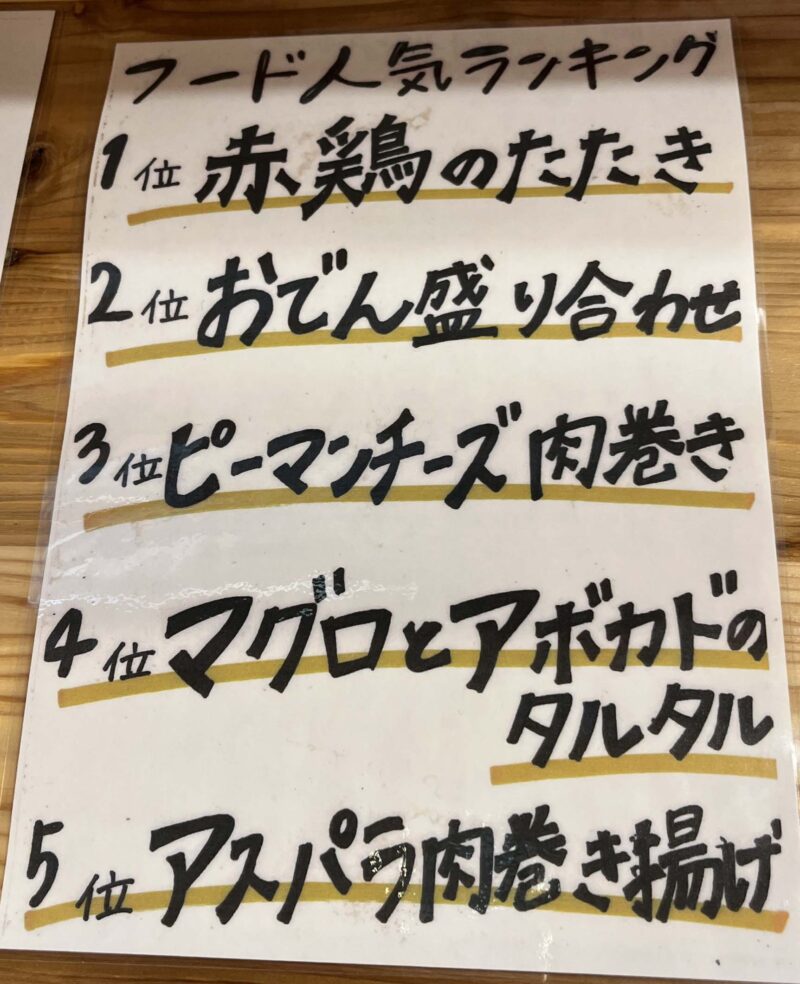 フード人気ランキング
1位 赤鶏のたたき
2位 おでん盛り合わせ
3位 ピーマンチーズ肉巻き
4位 マグロとアボカドの
タルタル
5位 アスパラ肉巻き揚げ